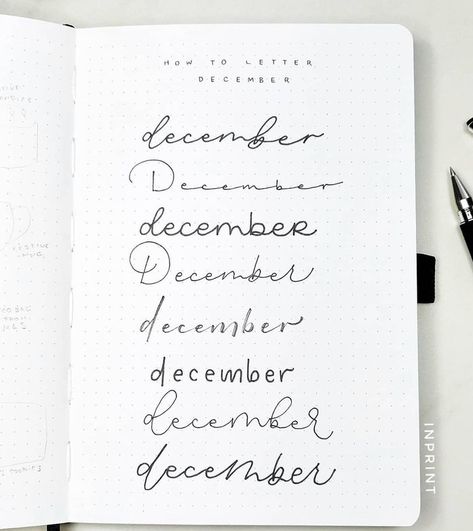 HOW TO LETTER
DECEMBER
december
December
december
December
december
december
december
december
INPRINT